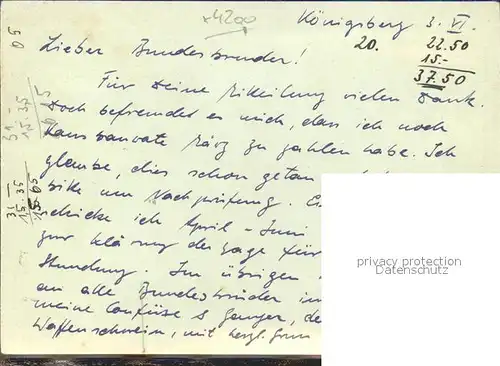 +4200
Königsberg 3. VI.
20. 22.50
15.-
37.50
Lieber Bundesbruder!
Für Deine Mitteilung vielen Dank.
Doch befremdet es mich, dass ich noch
März zu zahlen habe. Ich
glaube, dies schon getan
bitte um Nachprüfung.
schicke ich April - Juni
zur Klärung der Lage für
Stundung. Im übrigen
an alle Bundesbrüder
meine
Waffenschwein, mit herzl. Gruss
31
15.35
15.65
05
privacy protection
Datenschutz